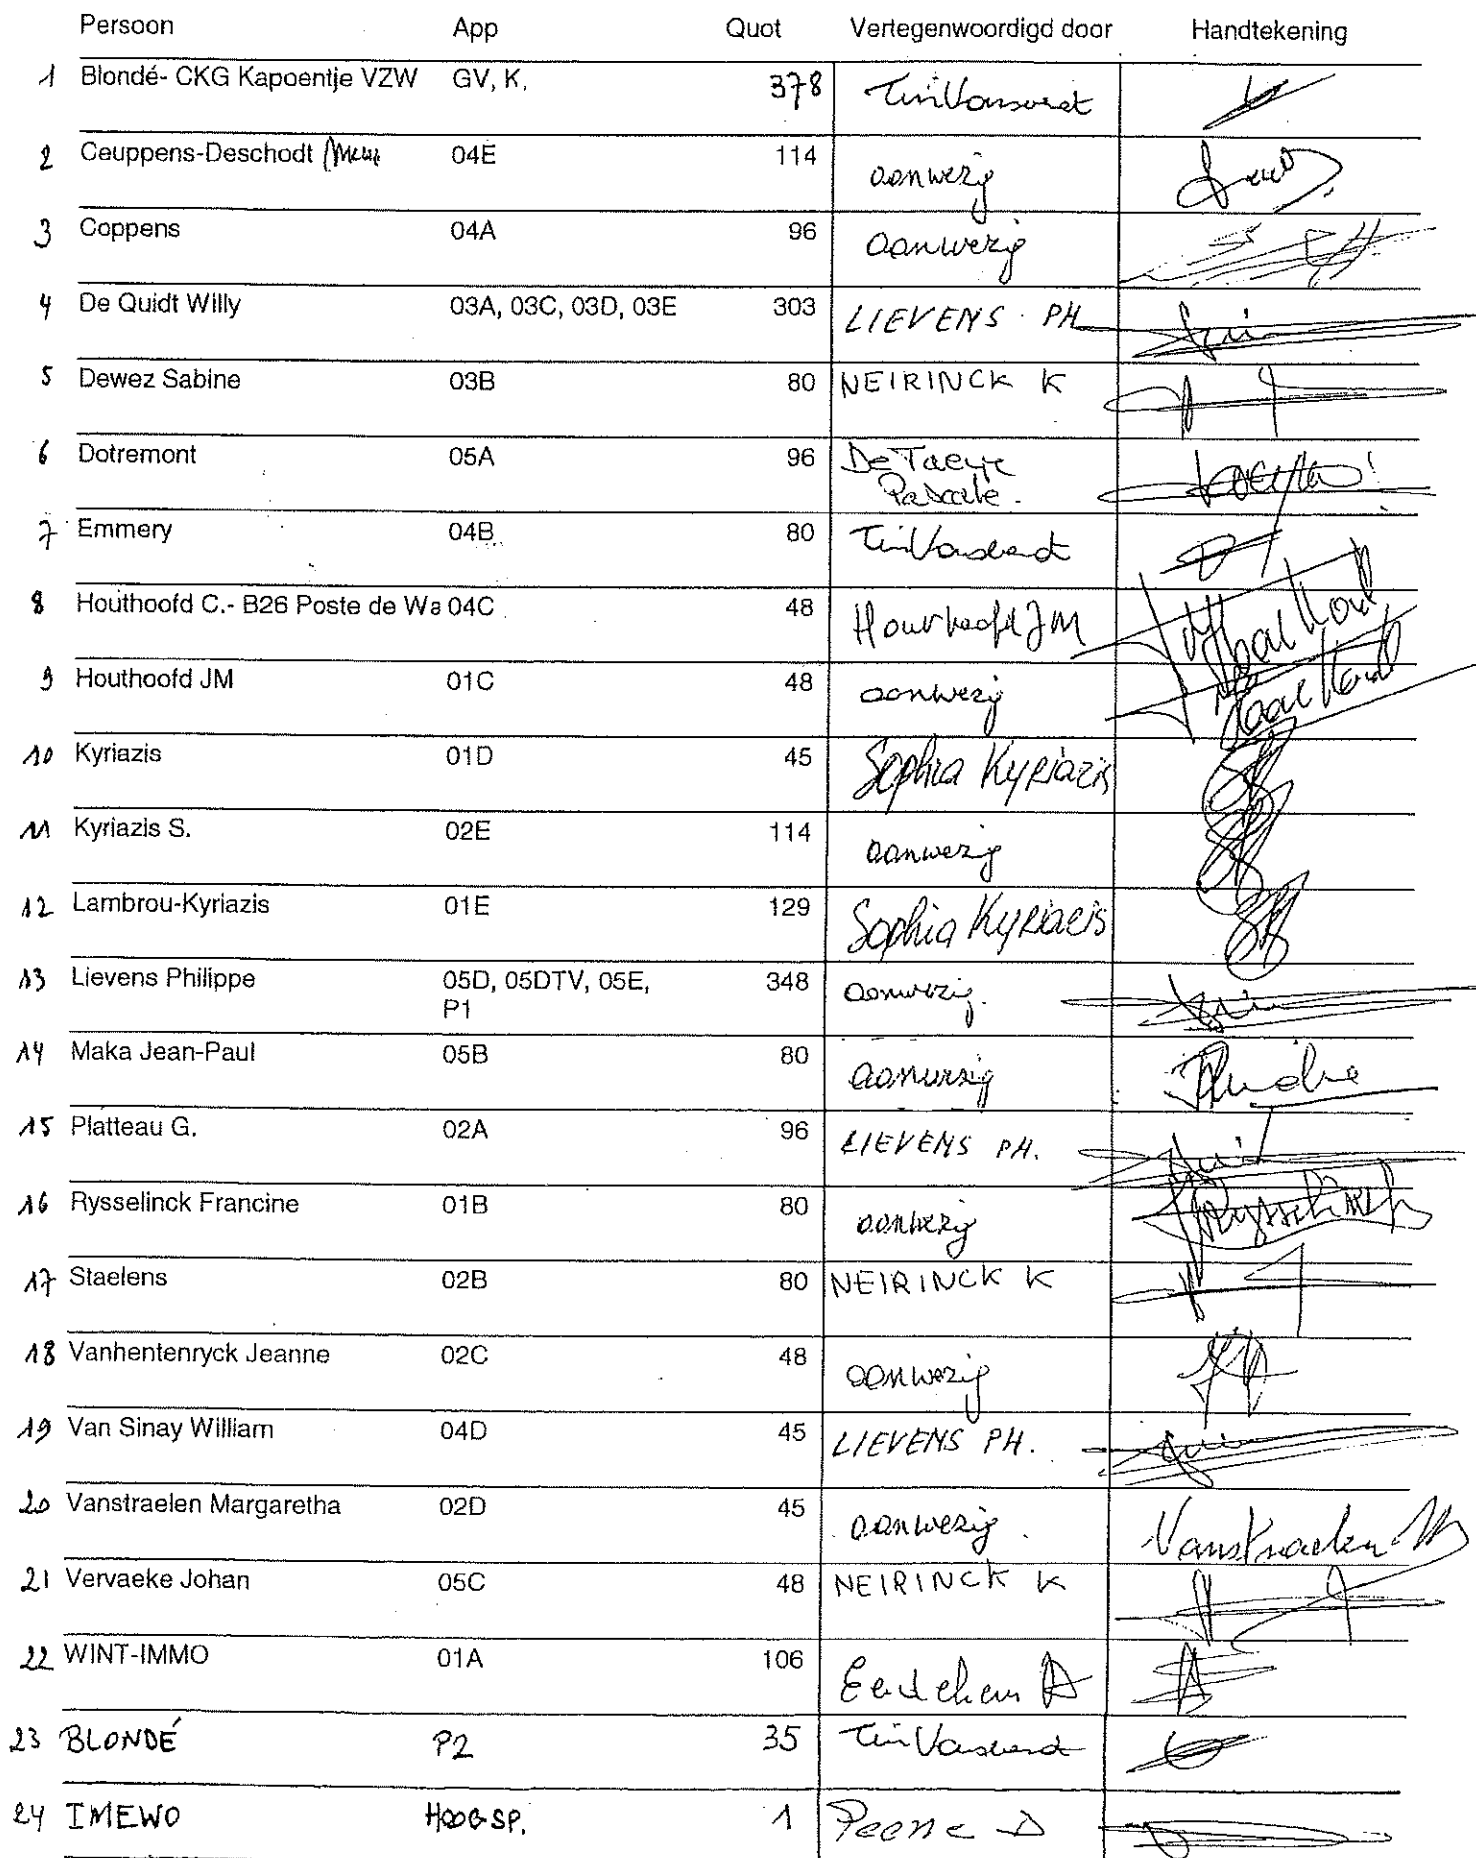 Persoon App Quot Vertegenwoordigd door Handtekening
1 Blondé- CKG Kapoentje VZW GV, K, 378
2 Ceuppens-Deschodt 04E 114 aanwezig
3 Coppens 04A 96 aanwezig
4 De Quidt Willy 03A, 03C, 03D, 03E 303 LIEVENS PH
5 Dewez Sabine 03B 80 NEIRINCK K
6 Dotremont 05A 96 De Taeye
Pascale.
7 Emmery 04B 80
8 Houthoofd C.- B26 Poste de Wa 04C 48 Houthoofd JM
9 Houthoofd JM 01C 48 aanwezig
10 Kyriazis 01D 45 Sophia Kyriazis
11 Kyriazis S. 02E 114 aanwezig
12 Lambrou-Kyriazis 01E 129 Sophia Kyriazis
13 Lievens Philippe 05D, 05DTV, 05E, 348 aanwezig.
P1
14 Maka Jean-Paul 05B 80 aanwezig
15 Platteau G. 02A 96 LIEVENS PH.
16 Rysselinck Francine 01B 80 aanwezig Rysselinck
17 Staelens 02B 80 NEIRINCK K
18 Vanhentenryck Jeanne 02C 48 aanwezig
19 Van Sinay William 04D 45 LIEVENS PH.
20 Vanstraelen Margaretha 02D 45 aanwezig. Vanstraelen M
21 Vervaeke Johan 05C 48 NEIRINCK K
22 WINT-IMMO 01A 106
23 BLONDÉ P2 35
24 IMEWO HOOGSP. 1 Peene D